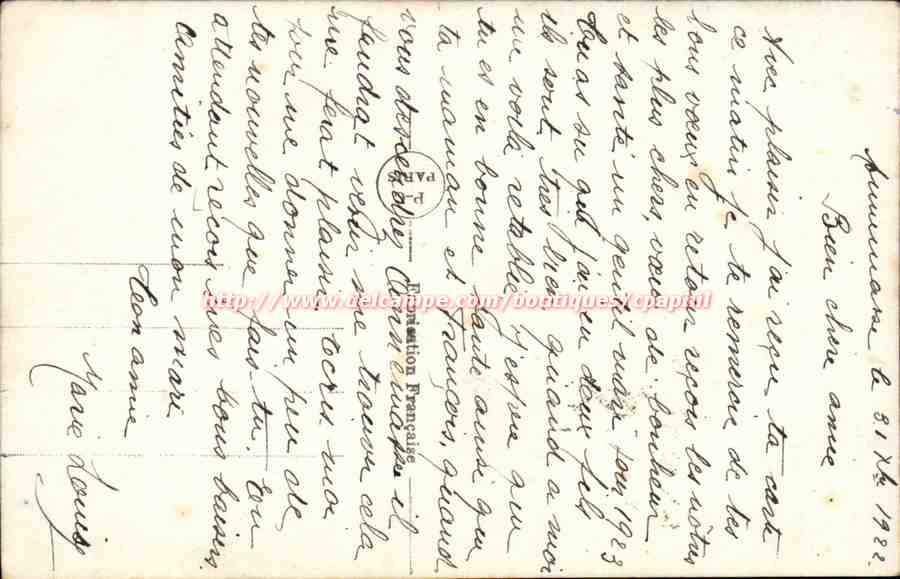 Annemasse le 31 Xbre 1922.
Bien chère amie
Avec plaisir j'ai reçu ta carte
ce matin je te remercie de tes
bons vœux en retour reçois les nôtres
les plus chers, vœux de bonheur
et santé un gentil mari pour 1923
tu as su que j'ai eu deux fils
ils sont très bien quand a moi
me voilà retablie, j'espère que
tu es en bonne santé ainsi que
ta maman et François, quand
vous descendrez Annemasse il
faudrat venir me trouver cela
me ferat plaisir ecris moi
pour me donner un peu de
tes nouvelles que fais-tu. En
attendant reçois mes bons baisers
Amitiés de mon mari
Ton amie
Marie Louise
P-C
PARIS
Fabrication Française
http://www.delcampe.com/boutiques/cpaphil